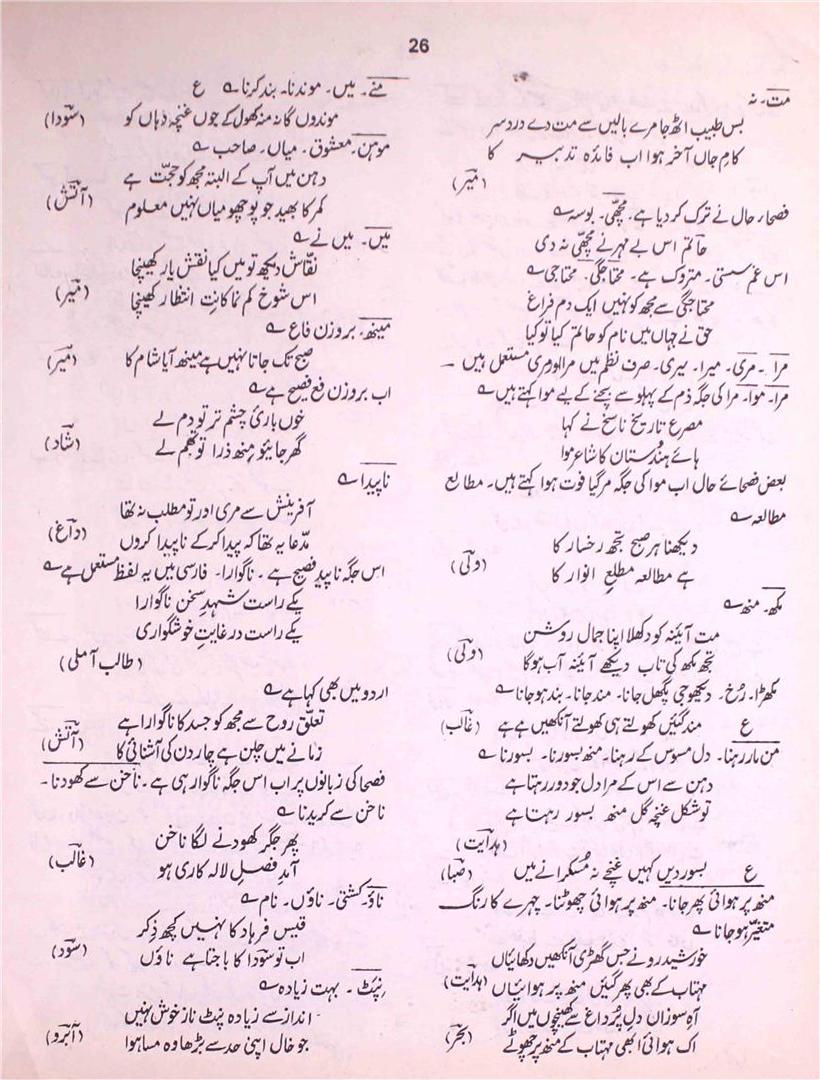 26
مت۔ نہ
بس طبیب اٹھ جا مرے بالیں سے مت دے دردِ سر
کامِ جاں آخر ہوا اب فائدہ تدبیر کا
(میر)
فصحائے حال نے ترک کر دیا ہے۔ مچھّی۔ بوسہ ؎
حاتم اس بے مہر نے مچھّی نہ دی
اس غم سستی۔ متروک ہے۔ محتاجگی۔ محتاجی ؎
محتاجگی سے مجھ کو نہیں ایک دم فراغ
حق نے جہاں میں نام کو حاتم کیا تو کیا
مرا۔ مری۔ میرا۔ میری۔ صرف نظم میں مرا اور مری مستعمل ہیں ۔
مرا۔ موا۔ مرا کی جگہ ذم کے پہلو سے بچنے کے لیے موا کہتے ہیں ؎
مصرع تاریخ ناسخ نے کہا
ہائے ہندوستان کا شاعر موا
بعض فصحائے حال اب موا کی جگہ مر گیا فوت ہوا کہتے ہیں۔ مطالع
مطالعہ ؎
دیکھنا ہر صبح تجھ رخسار کا
ہے مطالعہ مطلعِ انوار کا (ولی)
مکھ۔ منھ ؎
مت آئینہ کو دکھلا اپنا جمال روشن
تجھ مکھ کی تاب دیکھے آئینہ آب ہوگا (ولی)
مکھڑا۔ رُخ۔ دیکھو جی پگھل جانا۔ مند جانا۔ بند ہو جانا ؎
ع مند گئیں کھولتے ہی کھولتے آنکھیں ہے ہے (غالب)
من مار رہنا۔ دل مسوس کے رہنا۔ منھ بسورنا۔ بسورنا ؎
دہن سے اس کے مرا دل جو دور رہتا ہے
تو شکل غنچہ گل منھ بسور رہتا ہے
(ہدایت)
ع بسور دیں کہیں غنچے نہ مُسکرانے میں (صبا)
منھ پر ہوائی پھر جانا۔ منھ پر ہوائی چھوٹنا۔ چہرے کا رنگ
متغیّر ہو جانا ؎
خورشید رو نے جس گھڑی آنکھیں دکھائیاں
مہتاب کے بھی پھر گئیں منھ پر ہوائیاں (ہدایت)
آہِ سوزاں دلِ پُرداغ سے کھینچوں میں اگر
اک ہوائی ابھی مہتاب کے منھ پر چھوٹے (بحر)
منے۔ میں۔ موندنا۔ بند کرنا ؎ ع
موندوں گا نہ منہ کھول کے جوں غنچہ دہاں کو (سودا)
موہن۔ معشوق۔ میاں۔ صاحب ؎
دہن میں آپ کے البتہ مجھ کو حجّت ہے
کمر کا بھید جو پوچھو میاں نہیں معلوم (آتش)
میں۔ میں نے ؎
نقّاش دیکھ تو میں کیا نقشِ یار کھینچا
اس شوخ کم نما کا نت انتظار کھینچا (میر)
مینھ۔ بروزن فاع ؎
صبح تک جاتا نہیں ہے مینھ آیا شام کا (میر)
اب بروزن فع فصیح ہے ؎
خوں باریٔ چشم تر تو دم لے
گھر جائیو منھ ذرا تو تھم لے (شاد)
ناپیدا ؎
آفرینش سے مری اور تو مطلب نہ تھا
مدّعا یہ تھا کہ پیدا کر کے ناپیدا کروں (داغ)
اس جگہ ناپید فصیح ہے۔ ناگوارا۔ فارسی میں یہ لفظ مستعمل ہے ؎
یکے راست شہدِ سخن ناگوارا
یکے راست در غایتِ خوشگواری
(طالب آملی)
اردو میں بھی کہا ہے ؎
تعلّق روح سے مجھ کو جسد کا ناگوارا ہے
زمانے میں چلن ہے چار دن کی آشنائی کا (آتش)
فصحا کی زبانوں پر اب اس جگہ ناگوار ہی ہے۔ ناخن سے کھودنا۔
ناخن سے کریدنا ؎
پھر جگر کھودنے لگا ناخن
آمدِ فصلِ لالہ کاری ہو (غالب)
ناؤ۔ کشتی۔ ناؤں۔ نام ؎
قیس فرہاد کا نہیں کچھ ذِکر
اب تو سودا کا باجتا ہے ناؤں (سود)
نِپٹ۔ بہت زیادہ ؎
انداز سے زیادہ نپٹ ناز خوش نہیں
جو خال اپنی حد سے بڑھا وہ مسا ہوا (آبرو)